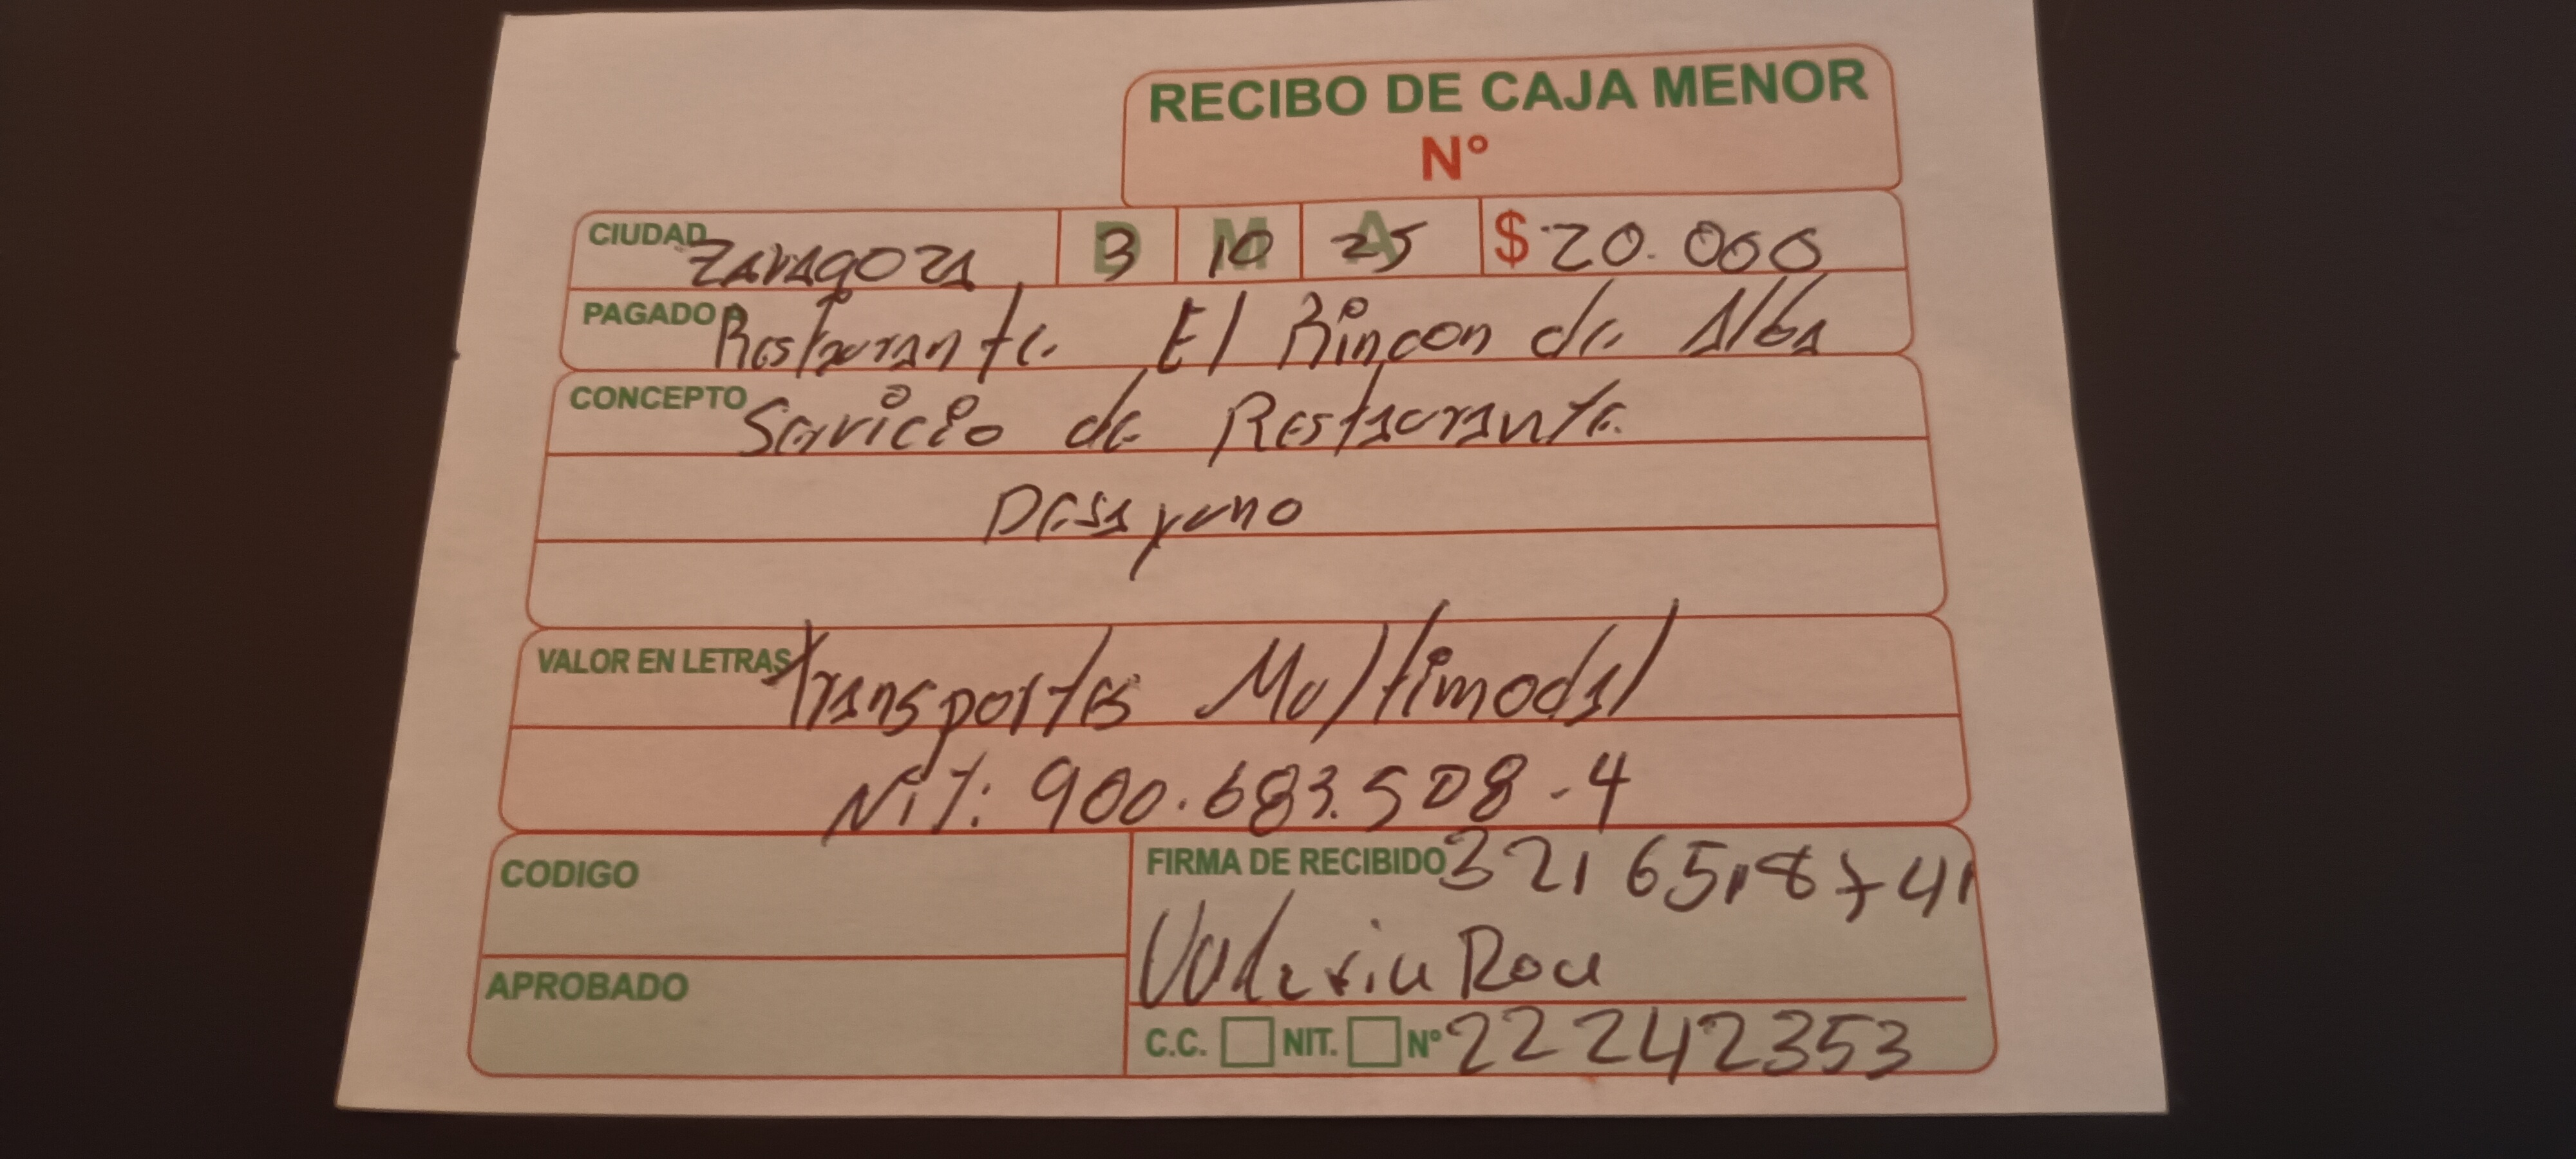 RECIBO DE CAJA MENOR
N°
CIUDAD Zaragoza D 3 M 10 A 25 $ 20.000
PAGADO A Restaurante El Rincon de Alba
CONCEPTO Servicio de Restaurante
Desayuno
VALOR EN LETRAS Transportes Multimodal
Nit: 900.683.508-4
CODIGO
FIRMA DE RECIBIDO 321 6518741
Valeria Roa
APROBADO
C.C. NIT. N° 22242353